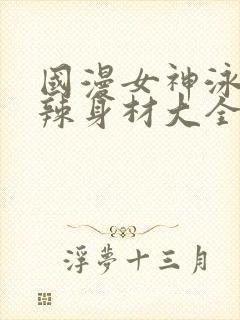 國漫女神泳
辣身材大全
浮夢十三月